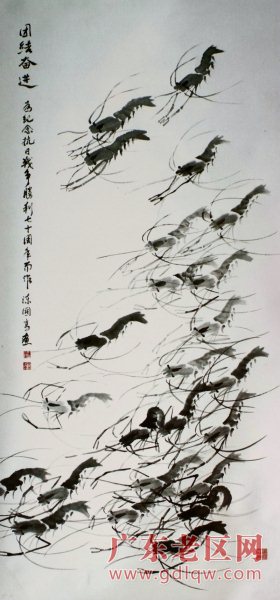 团结奋进
为纪念抗日战争胜利七十周年而作 陈国
广东老区网
www.gdlqw.com